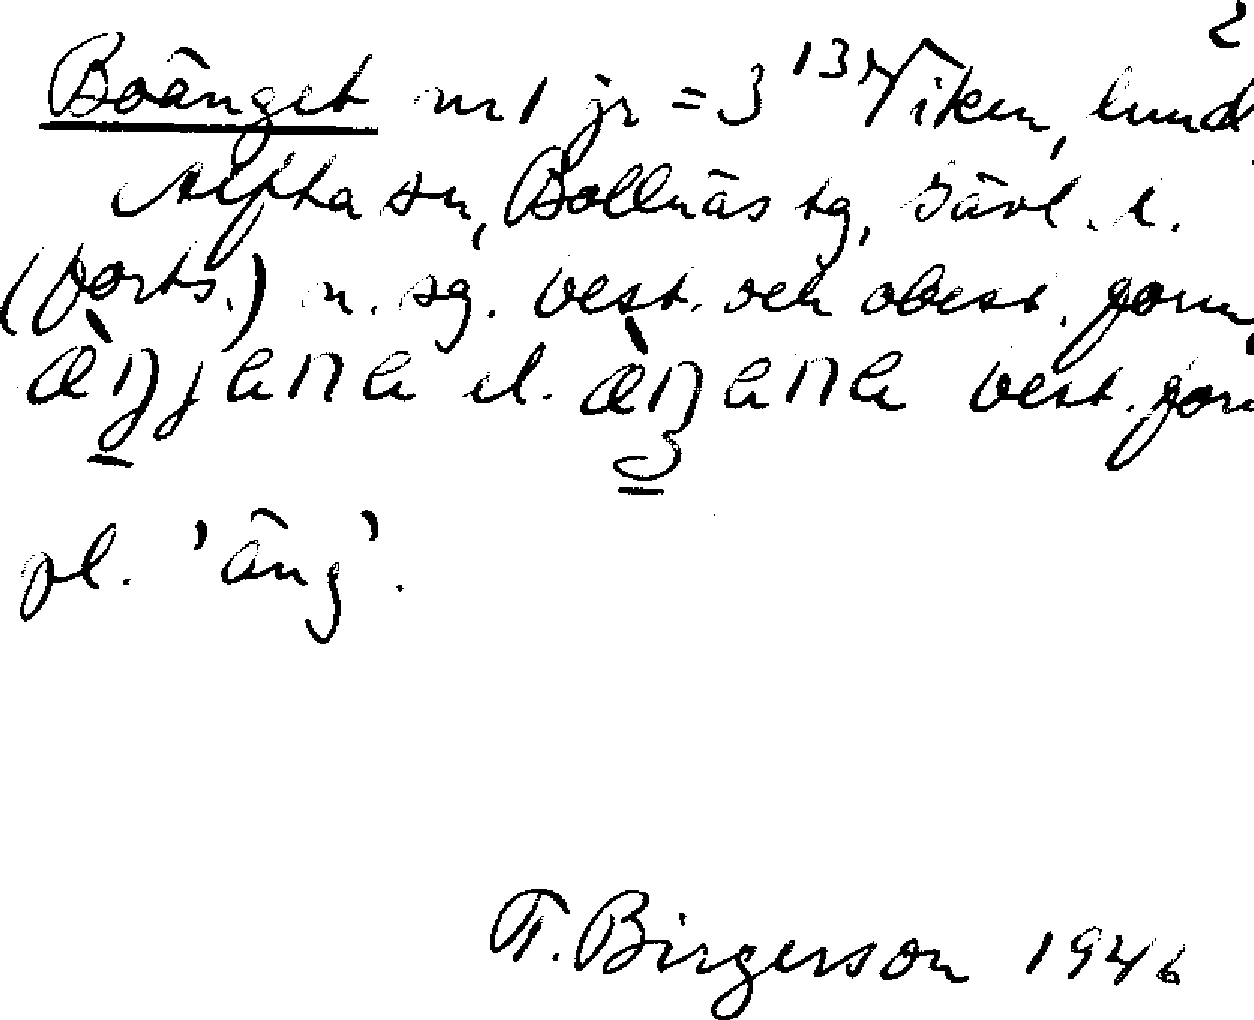 2
Boänget nr 1 jr = 3 13 Viken, lund
Alfta sn, Bollnäs tg, Gävl. l.
(forts.) n. sg. best. och obest. form,
æ̀ŋjana el. æ̀ŋana best. form
pl. 'äng'.
F. Birgerson 1946